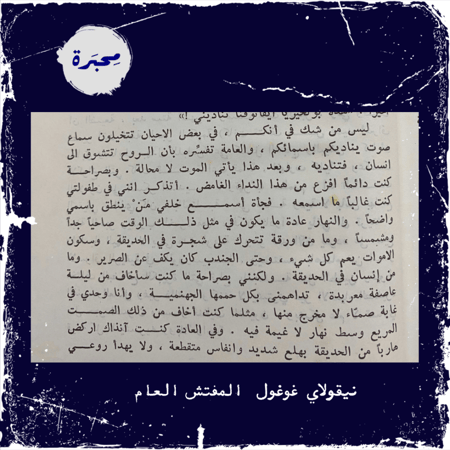 مِحبَرة
بولخيريا ايفانوفنا تناديني !»
ليس من شك في انكم ، في بعض الاحيان تتخيلون سماع
صوت يناديكم باسمائكم ، والعامة تفسره بان الروح تتشوق الى
انسان ، فتناديه ، وبعد هذا يأتي الموت لا محالة . وبصراحة
كنت دائماً افزع من هذا النداء الغامض . اتذكر انني في طفولتي
كنت غالباً ما اسمعه . فجأة اسمع خلفي مَنْ ينطق باسمي
واضحاً . والنهار عادة ما يكون في مثل ذلك الوقت صاحياً جداً
ومشمساً ، وما من ورقة تتحرك على شجرة في الحديقة ، وسكون
الاموات يعم كل شيء ، وحتى الجندب كان يكف عن الصرير . وما
من إنسان في الحديقة . ولكنني بصراحة ما كنت ساخاف من ليلة
عاصفة معربدة ، تداهمني بكل حممها الجهنمية ، وانا وحدي في
غابة صمّاء لا مخرج منها ، مثلما كنت اخاف من ذلك الصمت
المريع وسط نهار لا غيمة فيه . وفي العادة كنت آنذاك اركض
هارباً من الحديقة بهلع شديد وانفاس متقطعة ، ولا يهدا روعي
نيقولاي غوغول المفتش العام